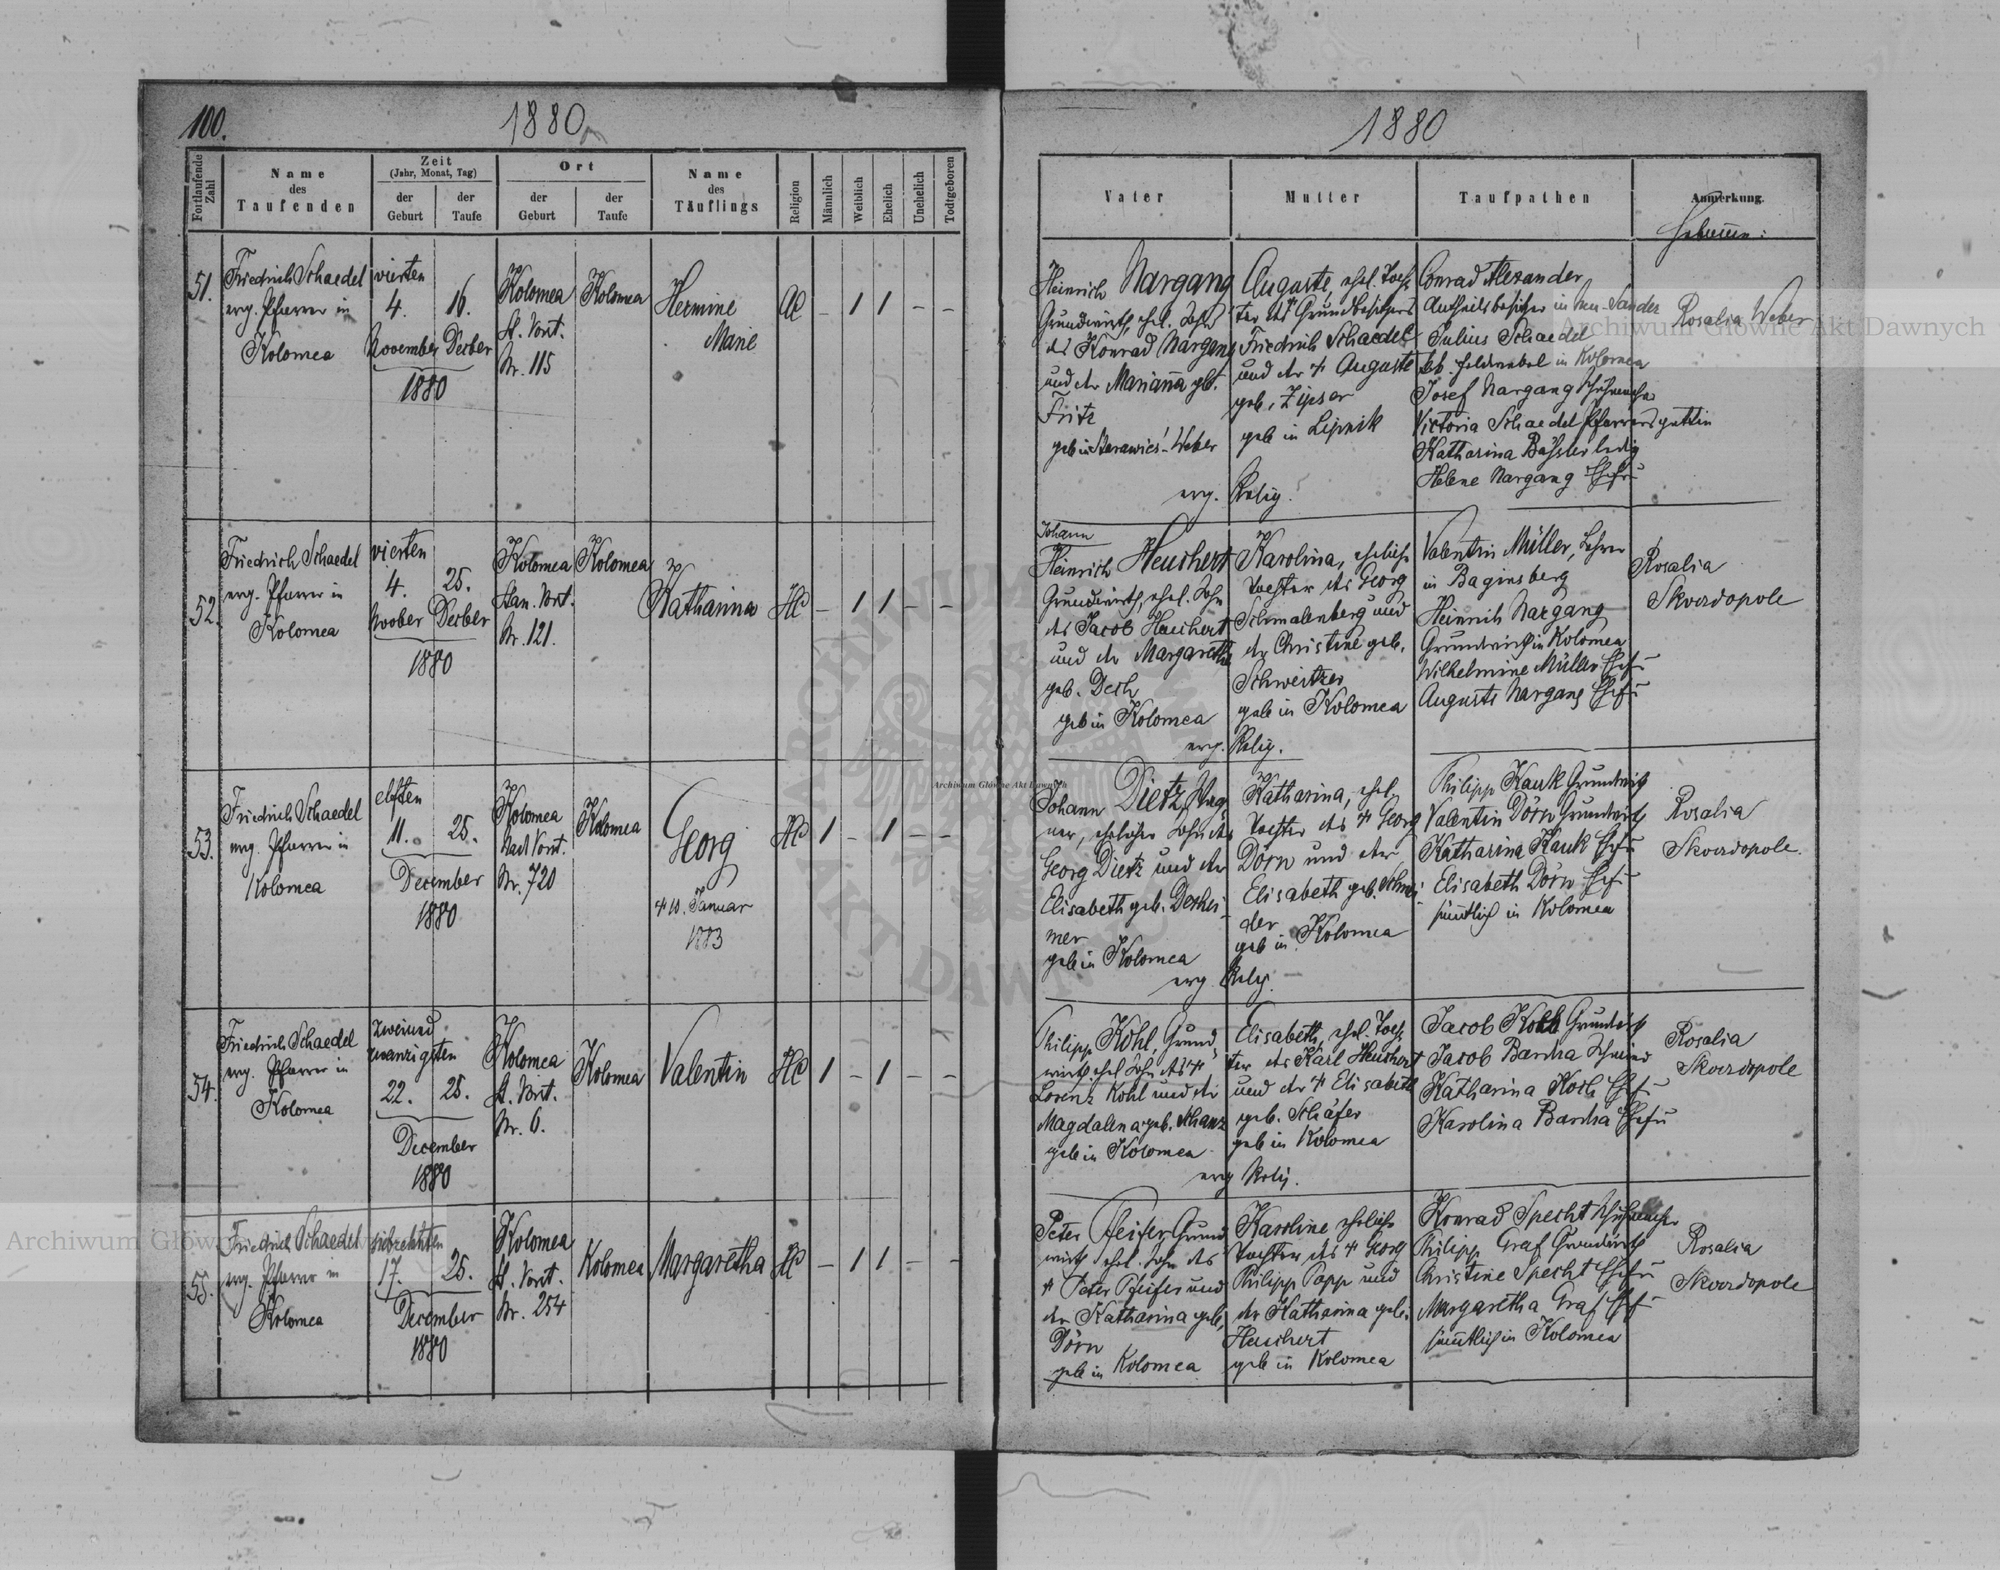 100.
1880
Fortlaufende Zahl
Name
des
Taufenden
Zeit
(Jahr, Monat, Tag)
der
Geburt
der
Taufe
Ort
der
Geburt
der
Taufe
Name
des
Täuflings
Religion
Männlich
Weiblich
Ehelich
Unehelich
Todtgeboren
51.
Friedrich Schaedel
evg. Pfarrer in
Kolomea
vierten
4.
November
16.
Decber
1880
Kolomea
St. Vorst.
Nr. 115
Kolomea
Hermine
Marie
AC
–
1
1
–
–
52.
Friedrich Schaedel
evg. Pfarrer in
Kolomea
vierten
4.
Novber
25.
Decber
1880
Kolomea
Stan. Vorst.
Nr. 121.
Kolomea
Katharina
HC
–
1
1
–
–
53.
Friedrich Schaedel
evg. Pfarrer in
Kolomea
elften
11.
25.
December
1880
Kolomea
Vorst.
Nr. 720
Kolomea
Georg
† 10. Januar
1883
HC
1
–
1
–
–
54.
Friedrich Schaedel
evg. Pfarrer in
Kolomea
zweiund
zwanzigsten
22.
25.
December
1880
Kolomea
St. Vorst.
Nr. 6.
Kolomea
Valentin
HC
1
–
1
–
–
55.
Friedrich Schaedel
evg. Pfarrer in
Kolomea
siebzehnten
17.
25.
December
1880
Kolomea
St. Vorst.
Nr. 254
Kolomea
Margaretha
HC
–
1
1
–
–
1880
Vater
Mutter
Taufpathen
Anmerkung.
Hebamme:
Heinrich Nargang
Grundwirth, ehel. Sohn
des Konrad Nargang
und der Marianna geb.
Fritz
evg.
Auguste, ehel. Toch-
ter des † Grundbesitzers
Friedrich Schaedel
und der † Auguste
geb. Zipser
geb in Lipnik
Relig.
Conrad Alexander
Antheilsbesitzer in Neu-Sandez
Julius Schaedel
Feldwebel in Kolomea
Josef Nargang Schuhmacher
Victoria Schaedel Pfarrersgattin
Katharina Bässler ledig
Helene Nargang Ehefr
Rosalia Weber
Johann
Heinrich Heuchert
Grundwirth, ehel. Sohn
des Jacob Heuchert
und der Margaretha
geb. Desh
geb in Kolomea
evg.
Karolina, eheliche
Tochter des Georg
Schmalenberg und
der Christine geb.
Schweitzer
geb in Kolomea
Relig.
Valentin Müller, Lehrer
in Baginsberg
Heinrich Nargang
Grundwirth in Kolomea
Wilhelmine Müller Ehefr
Auguste Nargang Ehefr
Rosalia
Skvordopole
Johann Dietz, Wag-
ner, ehelicher Sohn des
Georg Dietz und der
Elisabeth geb. Deshei-
mer
geb in Kolomea
evg.
Katharina, ehel.
Tochter des † Georg
Dörn und der
Elisabeth geb. Schnei-
der
geb in Kolomea
Relig.
Philipp Kauk Grundwirth
Valentin Dörn Grundwirth
Katharina Kauk Ehefr
Elisabeth Dörn Ehefr
sämtlich in Kolomea
Rosalia
Skvordopole.
Philipp Kohl, Grund-
wirth, ehel. Sohn des †
Lorenz Kohl und der
Magdalena geb. Schanz
geb in Kolomea
evg
Elisabeth, ehel. Toch-
ter des Karl Heuchert
und der † Elisabeth
geb. Schäfer
geb in Kolomea
Relig.
Jacob Kohl Grundwirth
Jacob Bartha Schmied
Katharina Kohl Ehefr
Karolina Bartha Ehefr
Rosalia
Skvordopole
Peter Pfeifer Grund
wirth, ehel. Sohn des
† Peter Pfeifer und
der Katharina geb.
Dörn
geb in Kolomea
Karoline eheliche
Tochter des † Georg
Philipp Popp und
der Katharina geb.
Heuchert
geb in Kolomea
Konrad Specht Schuhmacher
Philipp Graf Grundwirth
Christine Specht Ehefr
Margaretha Graf Ehefr
sämtlich in Kolomea
Rosalia
Skvordopole
Archiwum Główne Akt Dawnych
Archiwum Główne Akt Dawnych